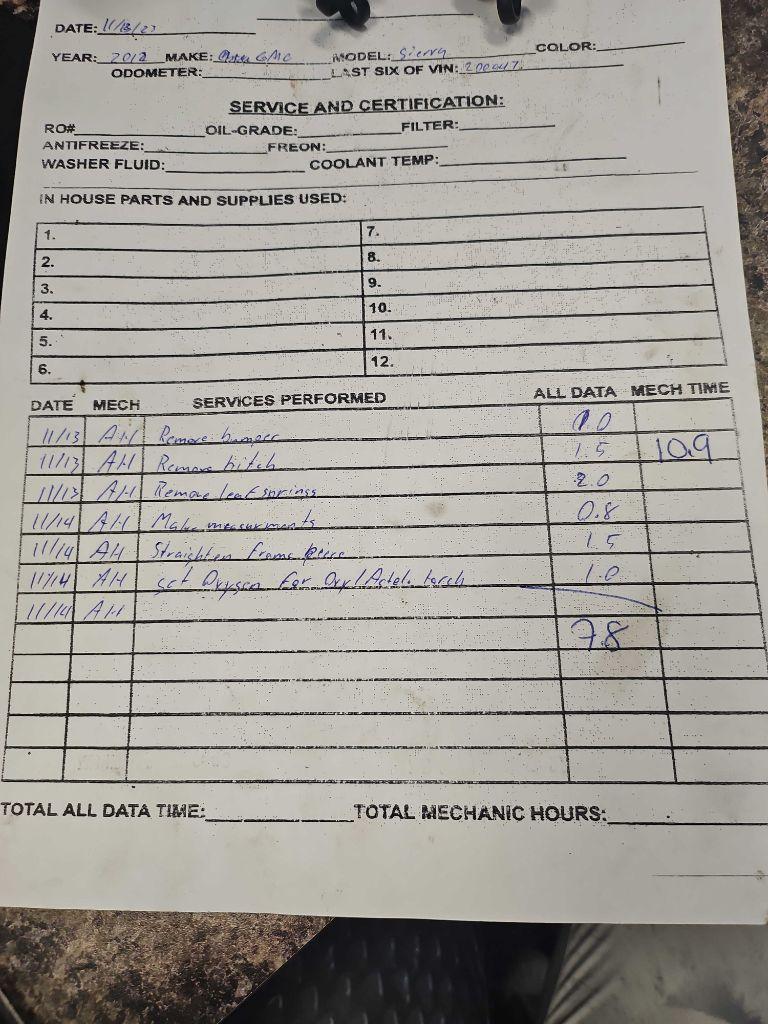 DATE: 11/13/23
YEAR: 2012 MAKE: GMC MODEL: Sierra COLOR:
ODOMETER: LAST SIX OF VIN: 200047
SERVICE AND CERTIFICATION:
RO# OIL-GRADE: FILTER:
ANTIFREEZE: FREON:
WASHER FLUID: COOLANT TEMP:
IN HOUSE PARTS AND SUPPLIES USED:
1. 7.
2. 8.
3. 9.
4. 10.
5. 11.
6. 12.
DATE MECH SERVICES PERFORMED ALL DATA MECH TIME
11/13 AH Remove bumper 1.0
11/13 AH Remove hitch 1.5 10.9
11/13 AH Remove leaf springs 2.0
11/14 AH Make measurments 0.8
11/14 AH Straighten frame 1.5
11/14 AH get Oxygen for Oxy/Actel. torch 1.0
11/14 AH
7.8
TOTAL ALL DATA TIME: TOTAL MECHANIC HOURS: